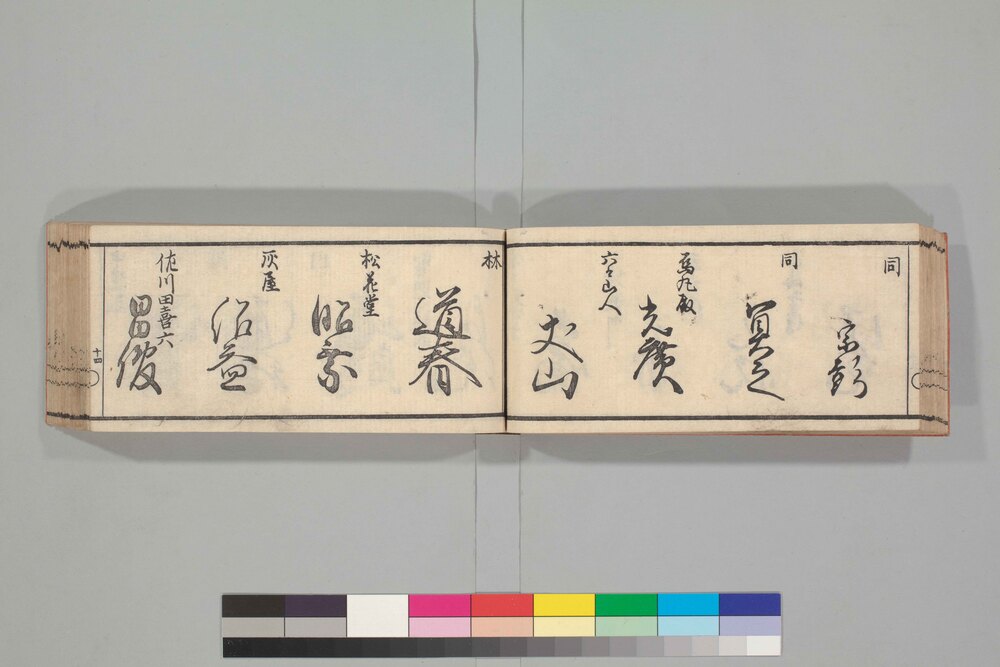 同
同
貞之
烏丸殿
光廣
六々山人
丈山
林
道春
松花堂
昭乗
灰屋
紹益
佐川田喜六
昌俊
十四